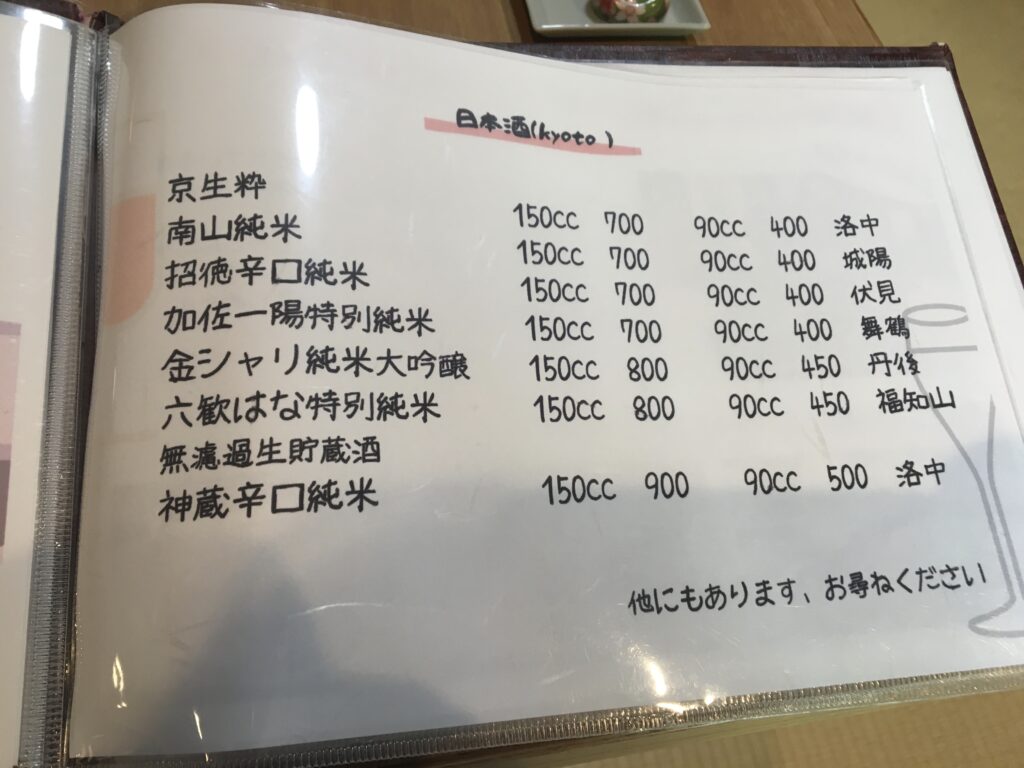 日本酒(kyoto)
京生粋 150cc 700 90cc 400 洛中
南山純米 150cc 700 90cc 400 城陽
招徳辛口純米 150cc 700 90cc 400 伏見
加佐一陽特別純米 150cc 700 90cc 400 舞鶴
金シャリ純米大吟醸 150cc 800 90cc 450 丹後
六歓はな特別純米 150cc 800 90cc 450 福知山
無濾過生貯蔵酒
神蔵辛口純米 150cc 900 90cc 500 洛中
他にもあります、お尋ねください